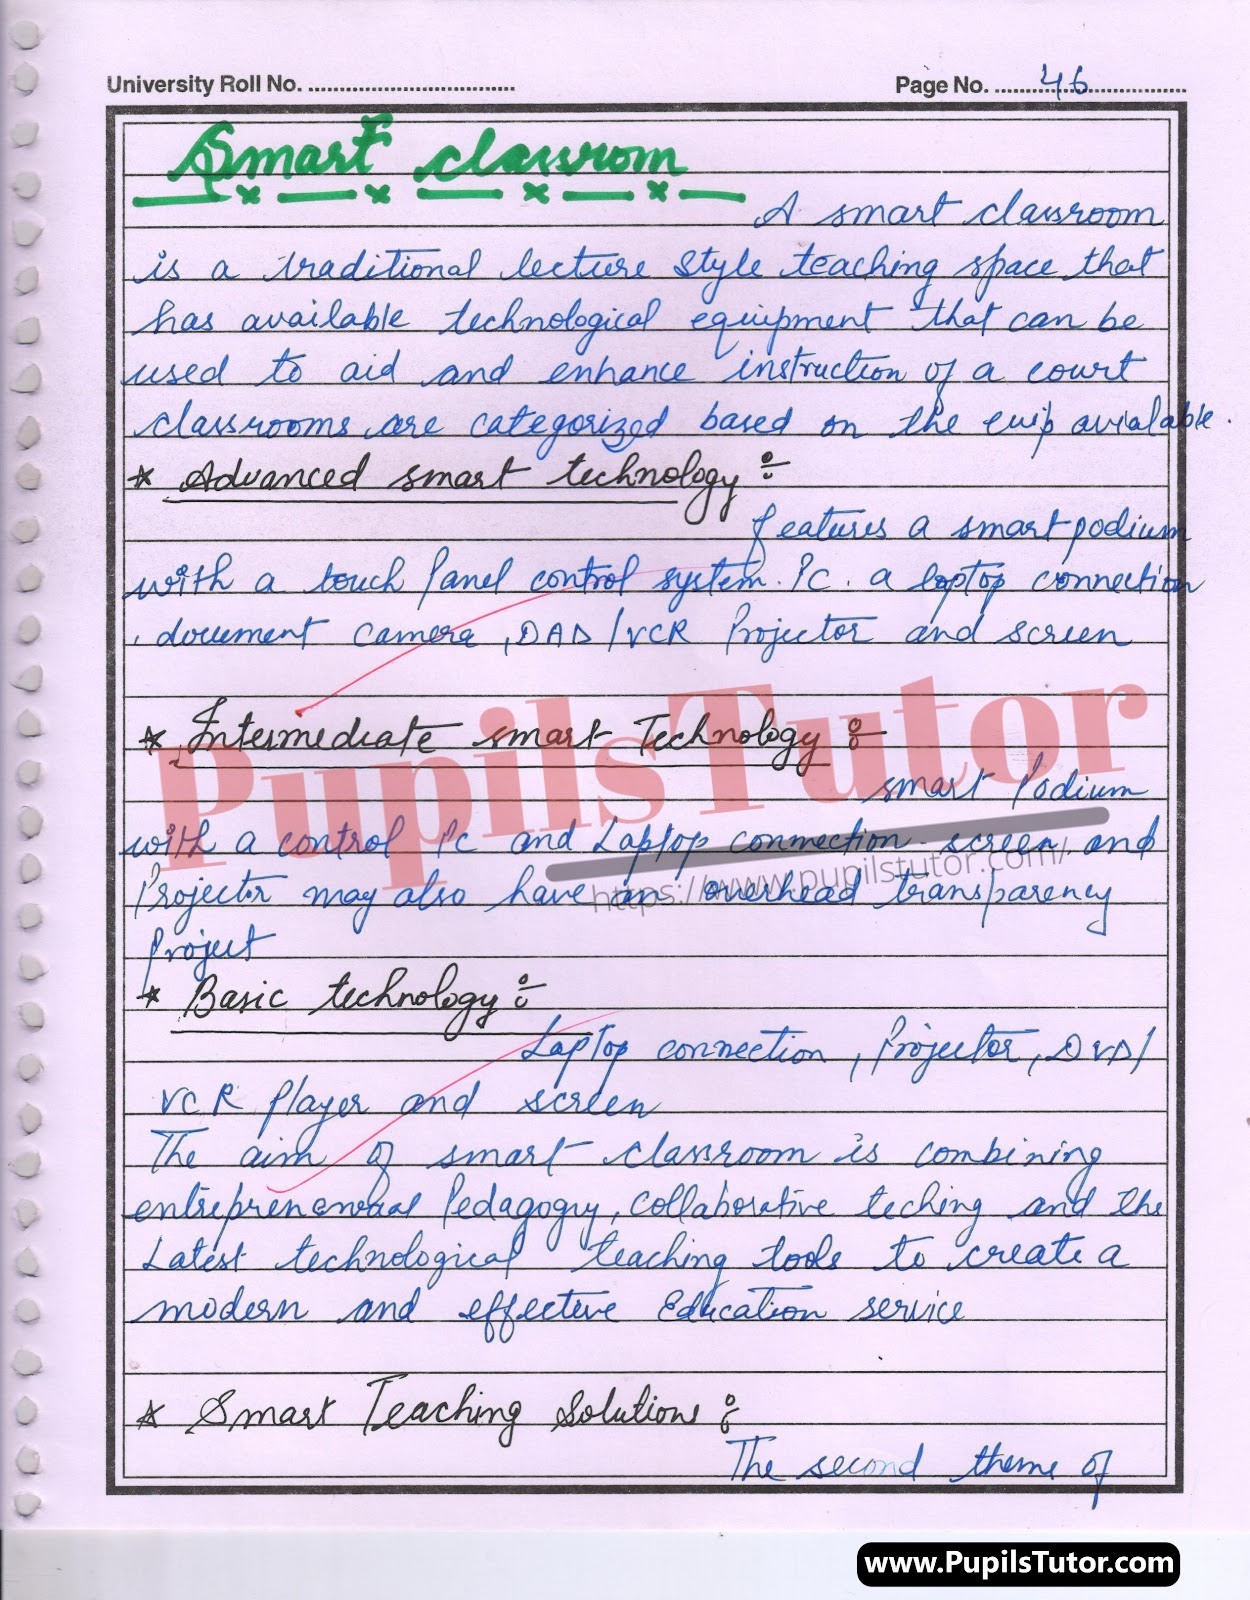 University Roll No. ................................. Page No. ....46....
Smart classrom
A smart classroom
is a traditional lecture style teaching space that
has available technological equipment that can be
used to aid and enhance instruction of a court
classrooms are categorized based on the euip avialable.
* Advanced smart technology :-
features a smart podium
with a touch Panel control system. PC. a laptop connection
, document camera, DAD/VCR Projector and screen
* Intermediate smart Technology :-
smart Podium
with a control Pc and Laptop connection screen and
Projector may also have an overhead transparency
Project
* Basic technology :-
Laptop connection, Projector, DVD/
VCR Player and screen
The aim of smart classroom is combining
Pedagogy, collaborative teching and the
Latest technological teaching tools to create a
modern and effective Education service
* Smart Teaching Solutions :-
The second theme of
PupilsTutor
https://www.pupilstutor.com/
www.PupilsTutor.com